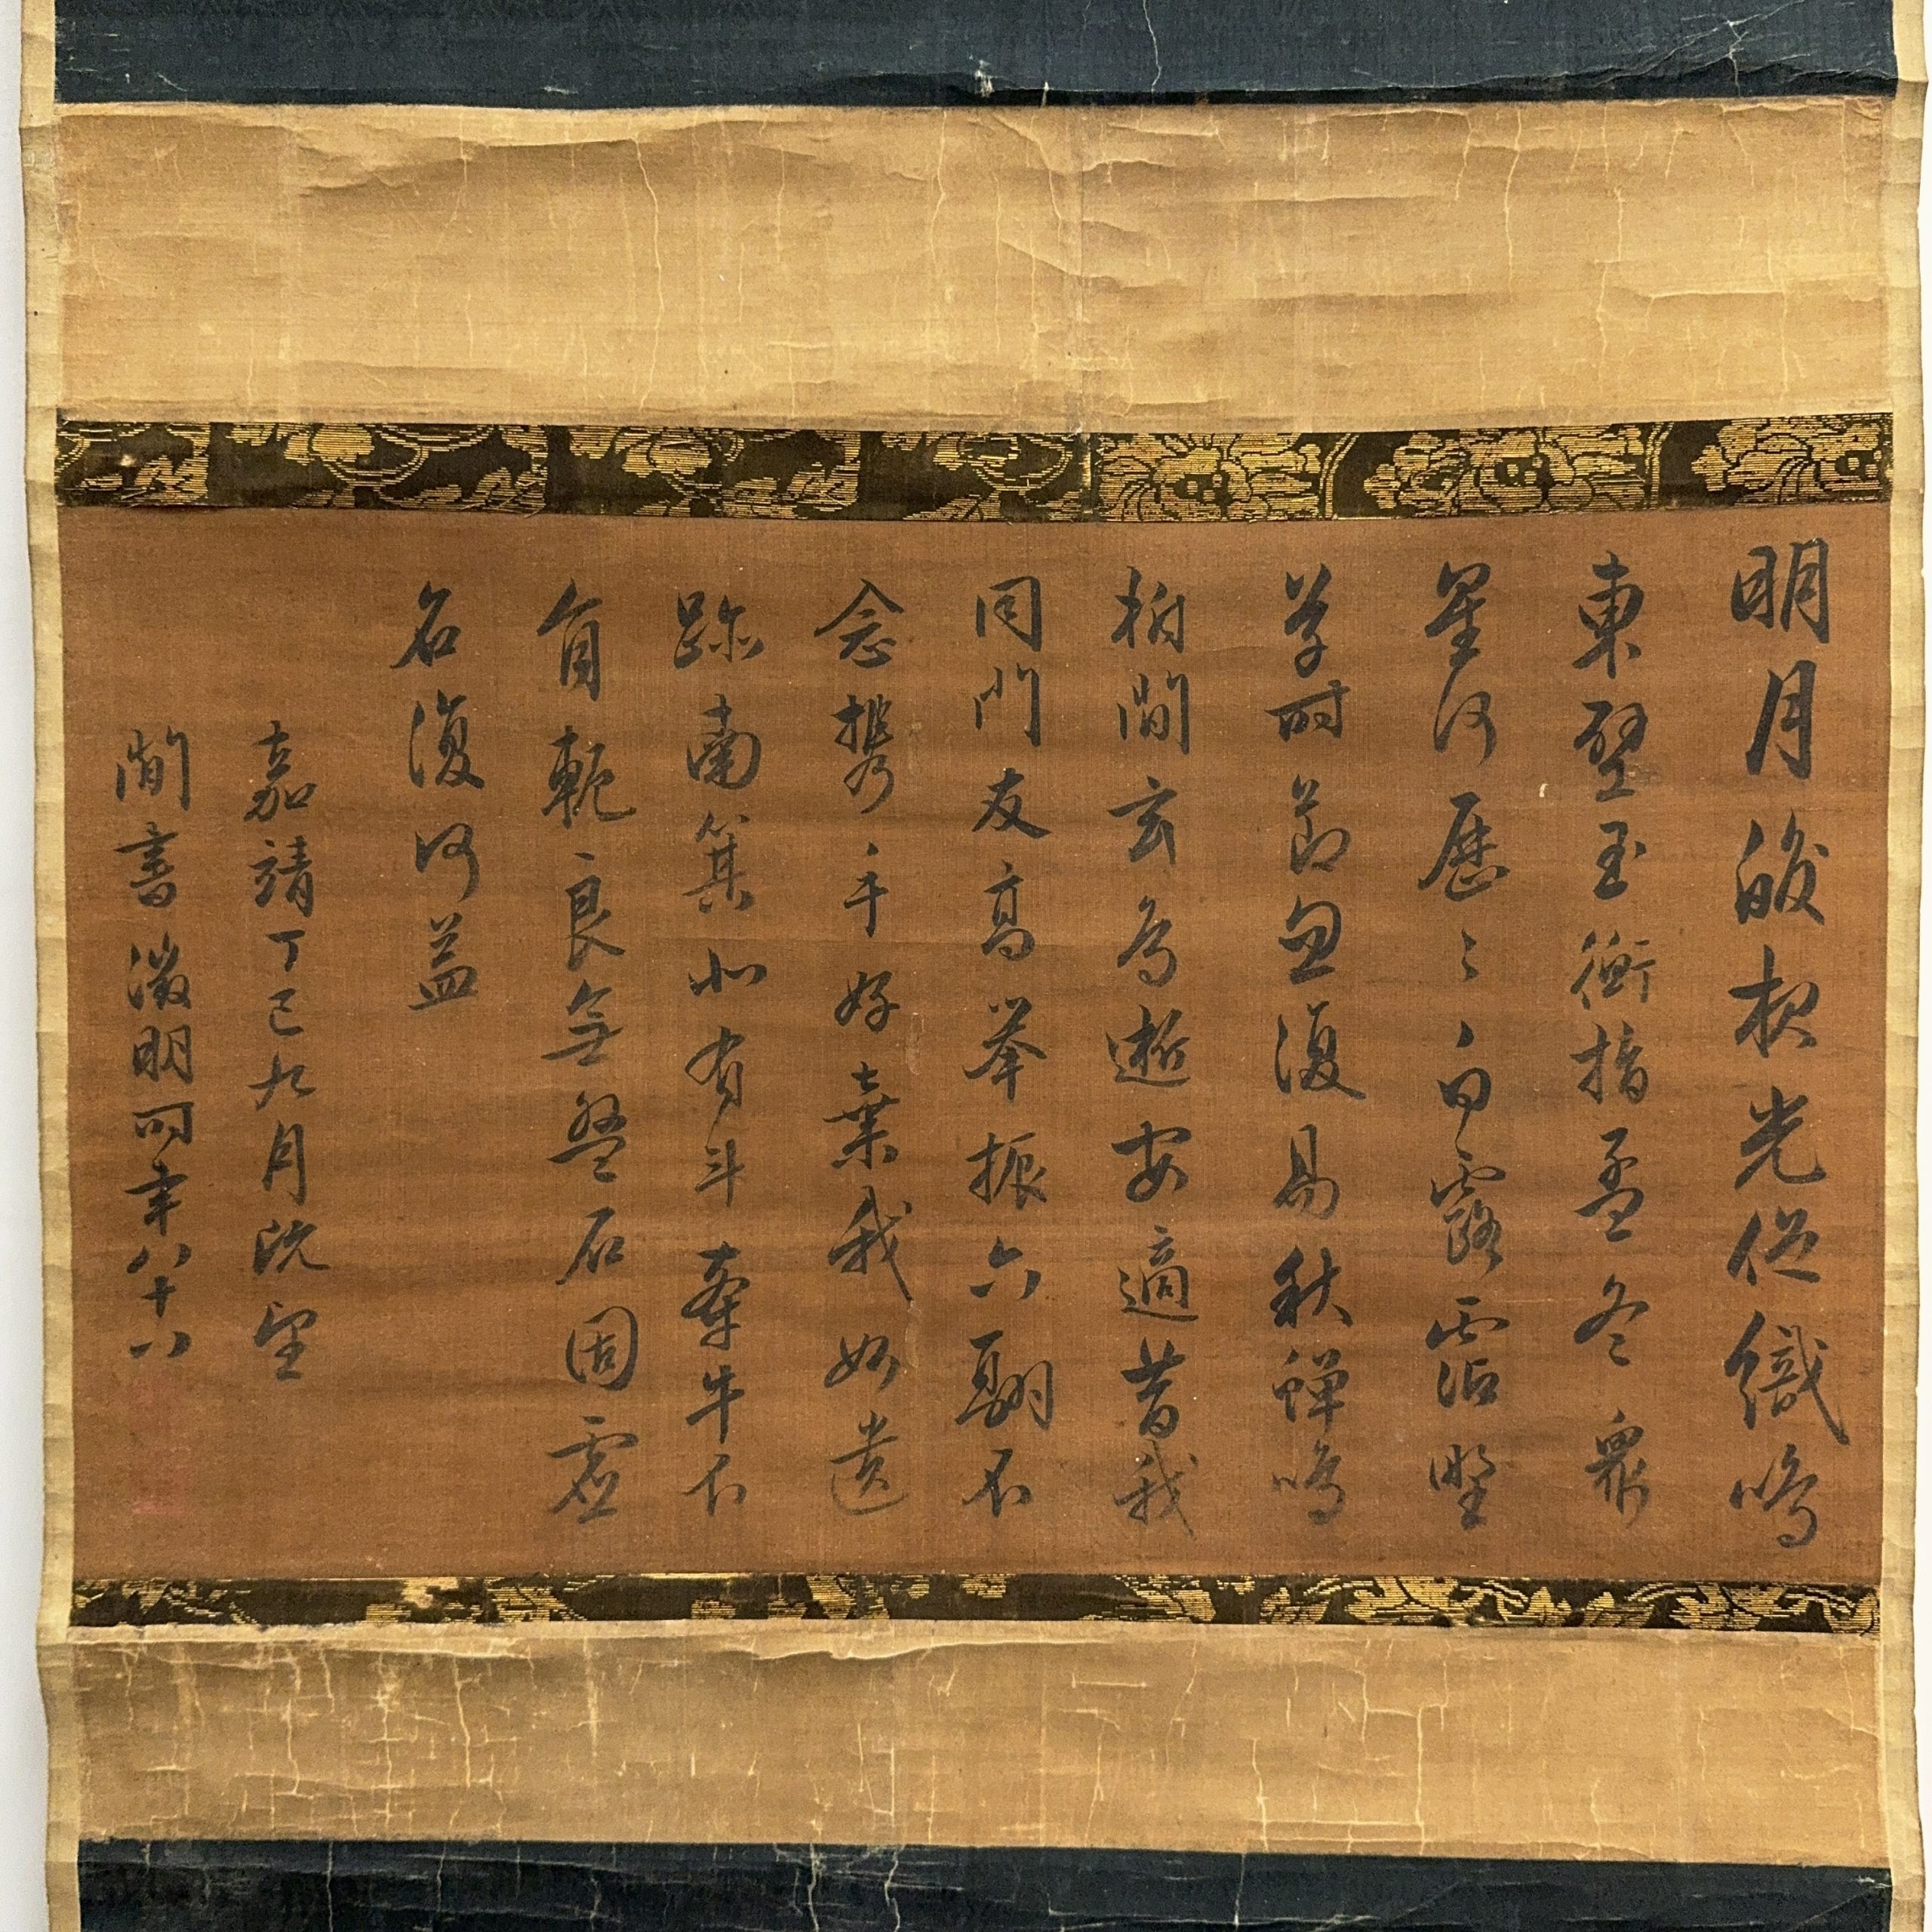 明月皎夜光促織鳴
東壁玉衡指孟冬衆
星何歷〻白露霑野
草時節忽復易秋蟬鳴
樹間玄鳥逝安適昔我
同門友高舉振六翮不
念攜手好棄我如遺
跡南箕北有斗牽牛不
負軛良無盤石固虛
名復何益
嘉靖丁巳九月既望
閒書徵明時年八十八